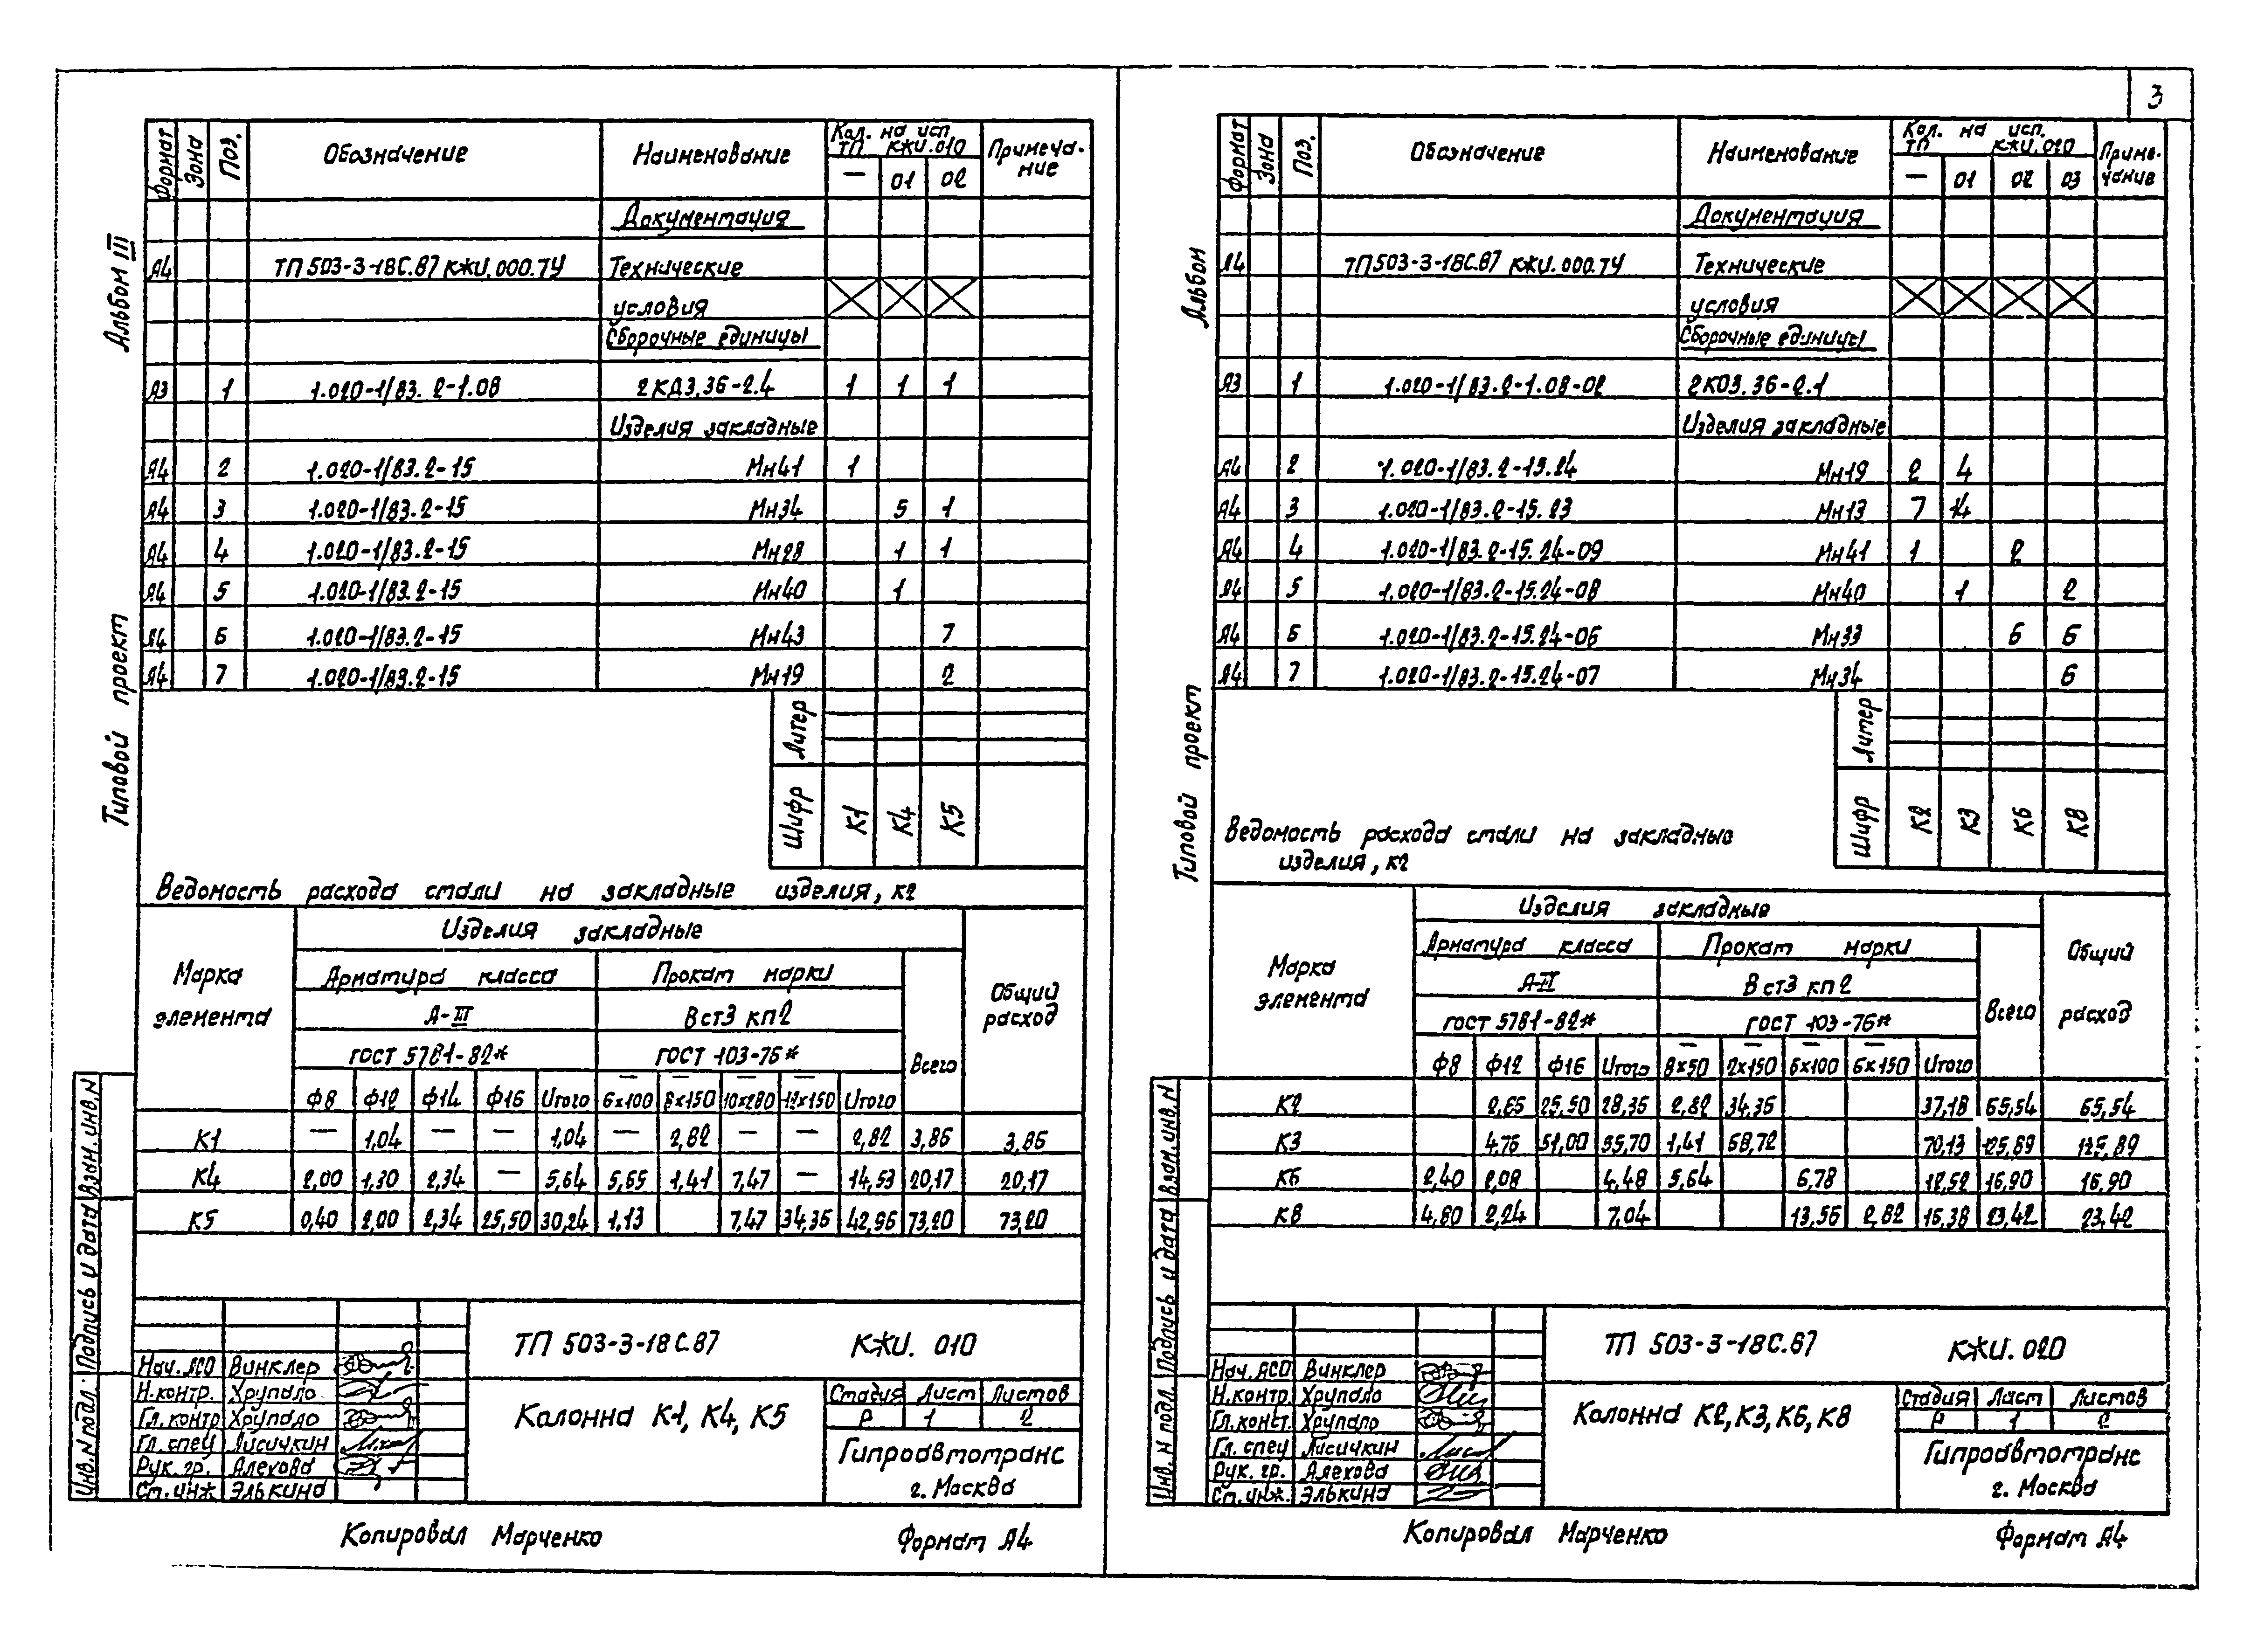 3
Альбом III
Типовой проект
Формат Зона Поз. Обозначение Наименование Кол. на исп. Примеча-
ТП КЖИ.010 ние
— 01 02
Документация
А4 ТП 503-3-18С.87 КЖИ.000.ТУ Технические
условия
Сборочные единицы
А3 1 1.020-1/83. 2-1.08 2КД3.36-2.4 1 1 1
Изделия закладные
А4 2 1.020-1/83.2-15 Мн41 1
А4 3 1.020-1/83.2-15 Мн34 5 1
А4 4 1.020-1/83.2-15 Мн28 1 1
А4 5 1.020-1/83.2-15 Мн40 1
А4 6 1.020-1/83.2-15 Мн43 7
А4 7 1.020-1/83.2-15 Мн19 2
Литер
Шифр К1 К4 К5
Ведомость расхода стали на закладные изделия, кг
Марка элемента Изделия закладные Общий расход
Арматура класса Прокат марки Всего
А-III ВСт3 кп2
ГОСТ 5781-82* ГОСТ 103-76*
Ф8 Ф12 Ф14 Ф16 Итого 6х100 8х150 10х280 12х150 Итого
К1 — 1,04 — — 1,04 — 2,82 — — 2,82 3,86 3,86
К4 2,00 1,30 2,34 — 5,64 5,65 1,41 7,47 — 14,53 20,17 20,17
К5 0,40 2,00 2,34 25,50 30,24 1,13 7,47 34,36 42,96 73,20 73,20
Инв.N подл. Подпись и дата Взам.инв.N
ТП 503-3-18С.87 КЖИ. 010
Нач. АСО Винклер
Н.контр. Хрупало
Гл.контр Хрупало
Гл. спец Лисичкин
Рук. гр. Алехова
Ст. инж Элькина
Колонна К1, К4, К5
Стадия Лист Листов
Р 1 2
Гипроавтотранс
г. Москва
Копировал Марченко Формат А4
Альбом
Типовой проект
Формат Зона Поз. Обозначение Наименование Кол. на исп. Приме-
ТП КЖИ.020 чание
— 01 02 03
Документация
А4 ТП503-3-18С.87 КЖИ.000.ТУ Технические
условия
Сборочные единицы
А3 1 1.020-1/83.2-1.08-02 2КО3.36-2.1
Изделия закладные
А4 2 1.020-1/83.2-15.24 Мн19 2 4
А4 3 1.020-1/83.2-15.23 Мн13 7 14
А4 4 1.020-1/83.2-15.24-09 Мн41 1 2
А4 5 1.020-1/83.2-15.24-08 Мн40 1 2
А4 6 1.020-1/83.2-15.24-06 Мн33 6 6
А4 7 1.020-1/83.2-15.24-07 Мн34 6
Литер
Шифр К2 К3 К6 К8
Ведомость расхода стали на закладные
изделия, кг
Марка элемента Изделия закладные Общий расход
Арматура класса Прокат марки Всего
А-III ВСт3 кп2
ГОСТ 5781-82* ГОСТ 103-76*
Ф8 Ф12 Ф16 Итого 8х50 12х150 6х100 6х150 Итого
К2 2,65 25,50 28,36 2,82 34,36 37,18 65,54 65,54
К3 4,76 51,00 55,70 1,41 68,72 70,13 125,89 125,89
К6 2,40 2,08 4,48 5,64 6,78 12,52 16,90 16,90
К8 4,80 2,24 7,04 13,56 2,82 16,38 23,42 23,42
Инв. N подл. Подпись и дата Взам.инв.N
ТП 503-3-18С.87 КЖИ. 020
Нач. АСО Винклер
Н.контр. Хрупало
Гл.конст. Хрупало
Гл. спец Лисичкин
Рук. гр. Алехова
Ст. инж. Элькина
Колонна К2, К3, К6, К8
Стадия Лист Листов
Р 1 2
Гипроавтотранс
г. Москва
Копировал Марченко Формат А4